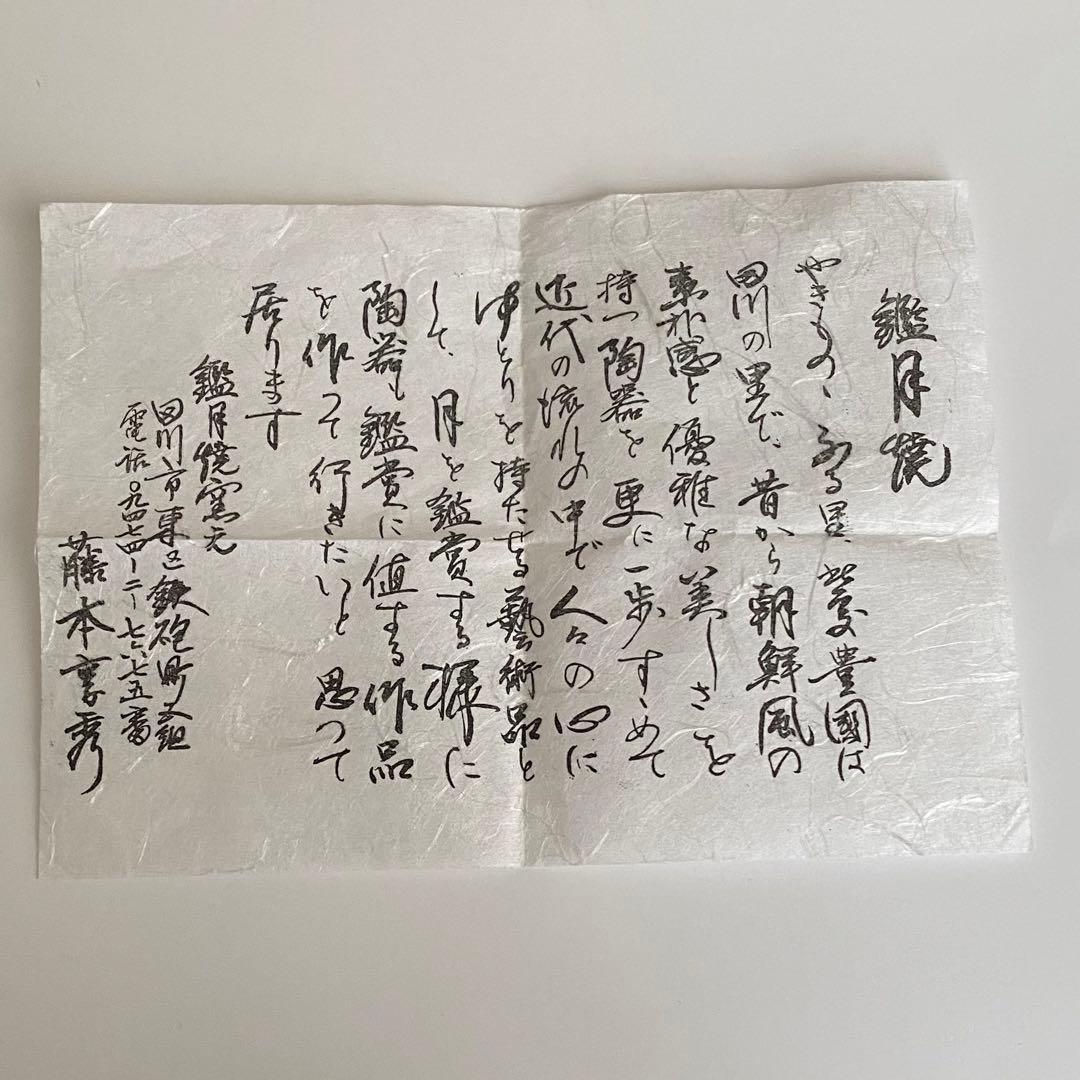 鑑月焼
やきものゝふる里、豊國は
田川の里で、昔から朝鮮風の
素朴感と優雅な美しさを
持つ陶器を更に一歩すゝめて
近代の流れの中で人々の心に
ゆとりを持たせる藝術品と
して、月を鑑賞する様に
陶器も鑑賞に値する作品
を作って行きたいと思って
居ります
鑑月焼窯元
田川市東区鉄砲町
電話〇九四七四ー二ー七六七五番
藤本秀